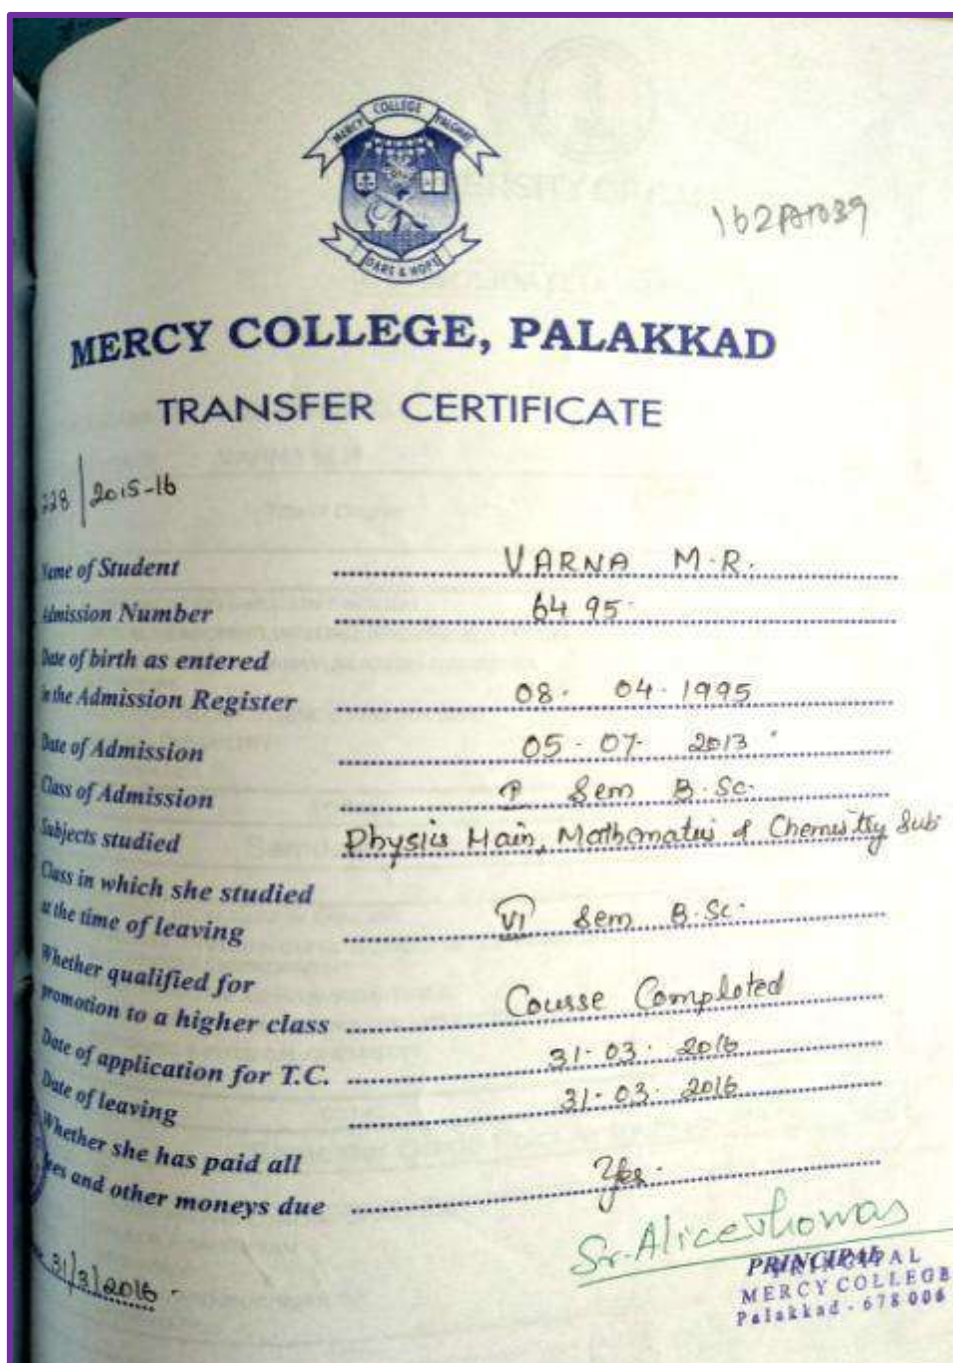 MERCY COLLEGE PALGHAT
DARE & HOPE
MERCY COLLEGE, PALAKKAD
TRANSFER CERTIFICATE
228/2015-16
Name of Student VARNA M.R.
Admission Number 6495
Date of birth as entered
in the Admission Register 08. 04. 1995
Date of Admission 05-07-2013
Class of Admission I Sem B.Sc.
Subjects studied Physics Main, Mathematics & Chemistry Sub
Class in which she studied
at the time of leaving VI Sem B.Sc.
Whether qualified for
promotion to a higher class Course Completed
Date of application for T.C. 31.03.2016
Date of leaving 31-03.2016
Whether she has paid all
fees and other moneys due Yes.
Sr. Alice Thomas
31/3/2016
PRINCIPAL
PRINCIPAL
MERCY COLLEGE
Palakkad - 678 006